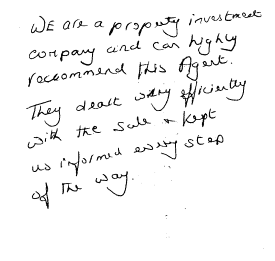 WE are a property investment
company and can highly
reccommend this Agent.
They dealt very efficiently
with the sale & kept
us informed every step
of the way.